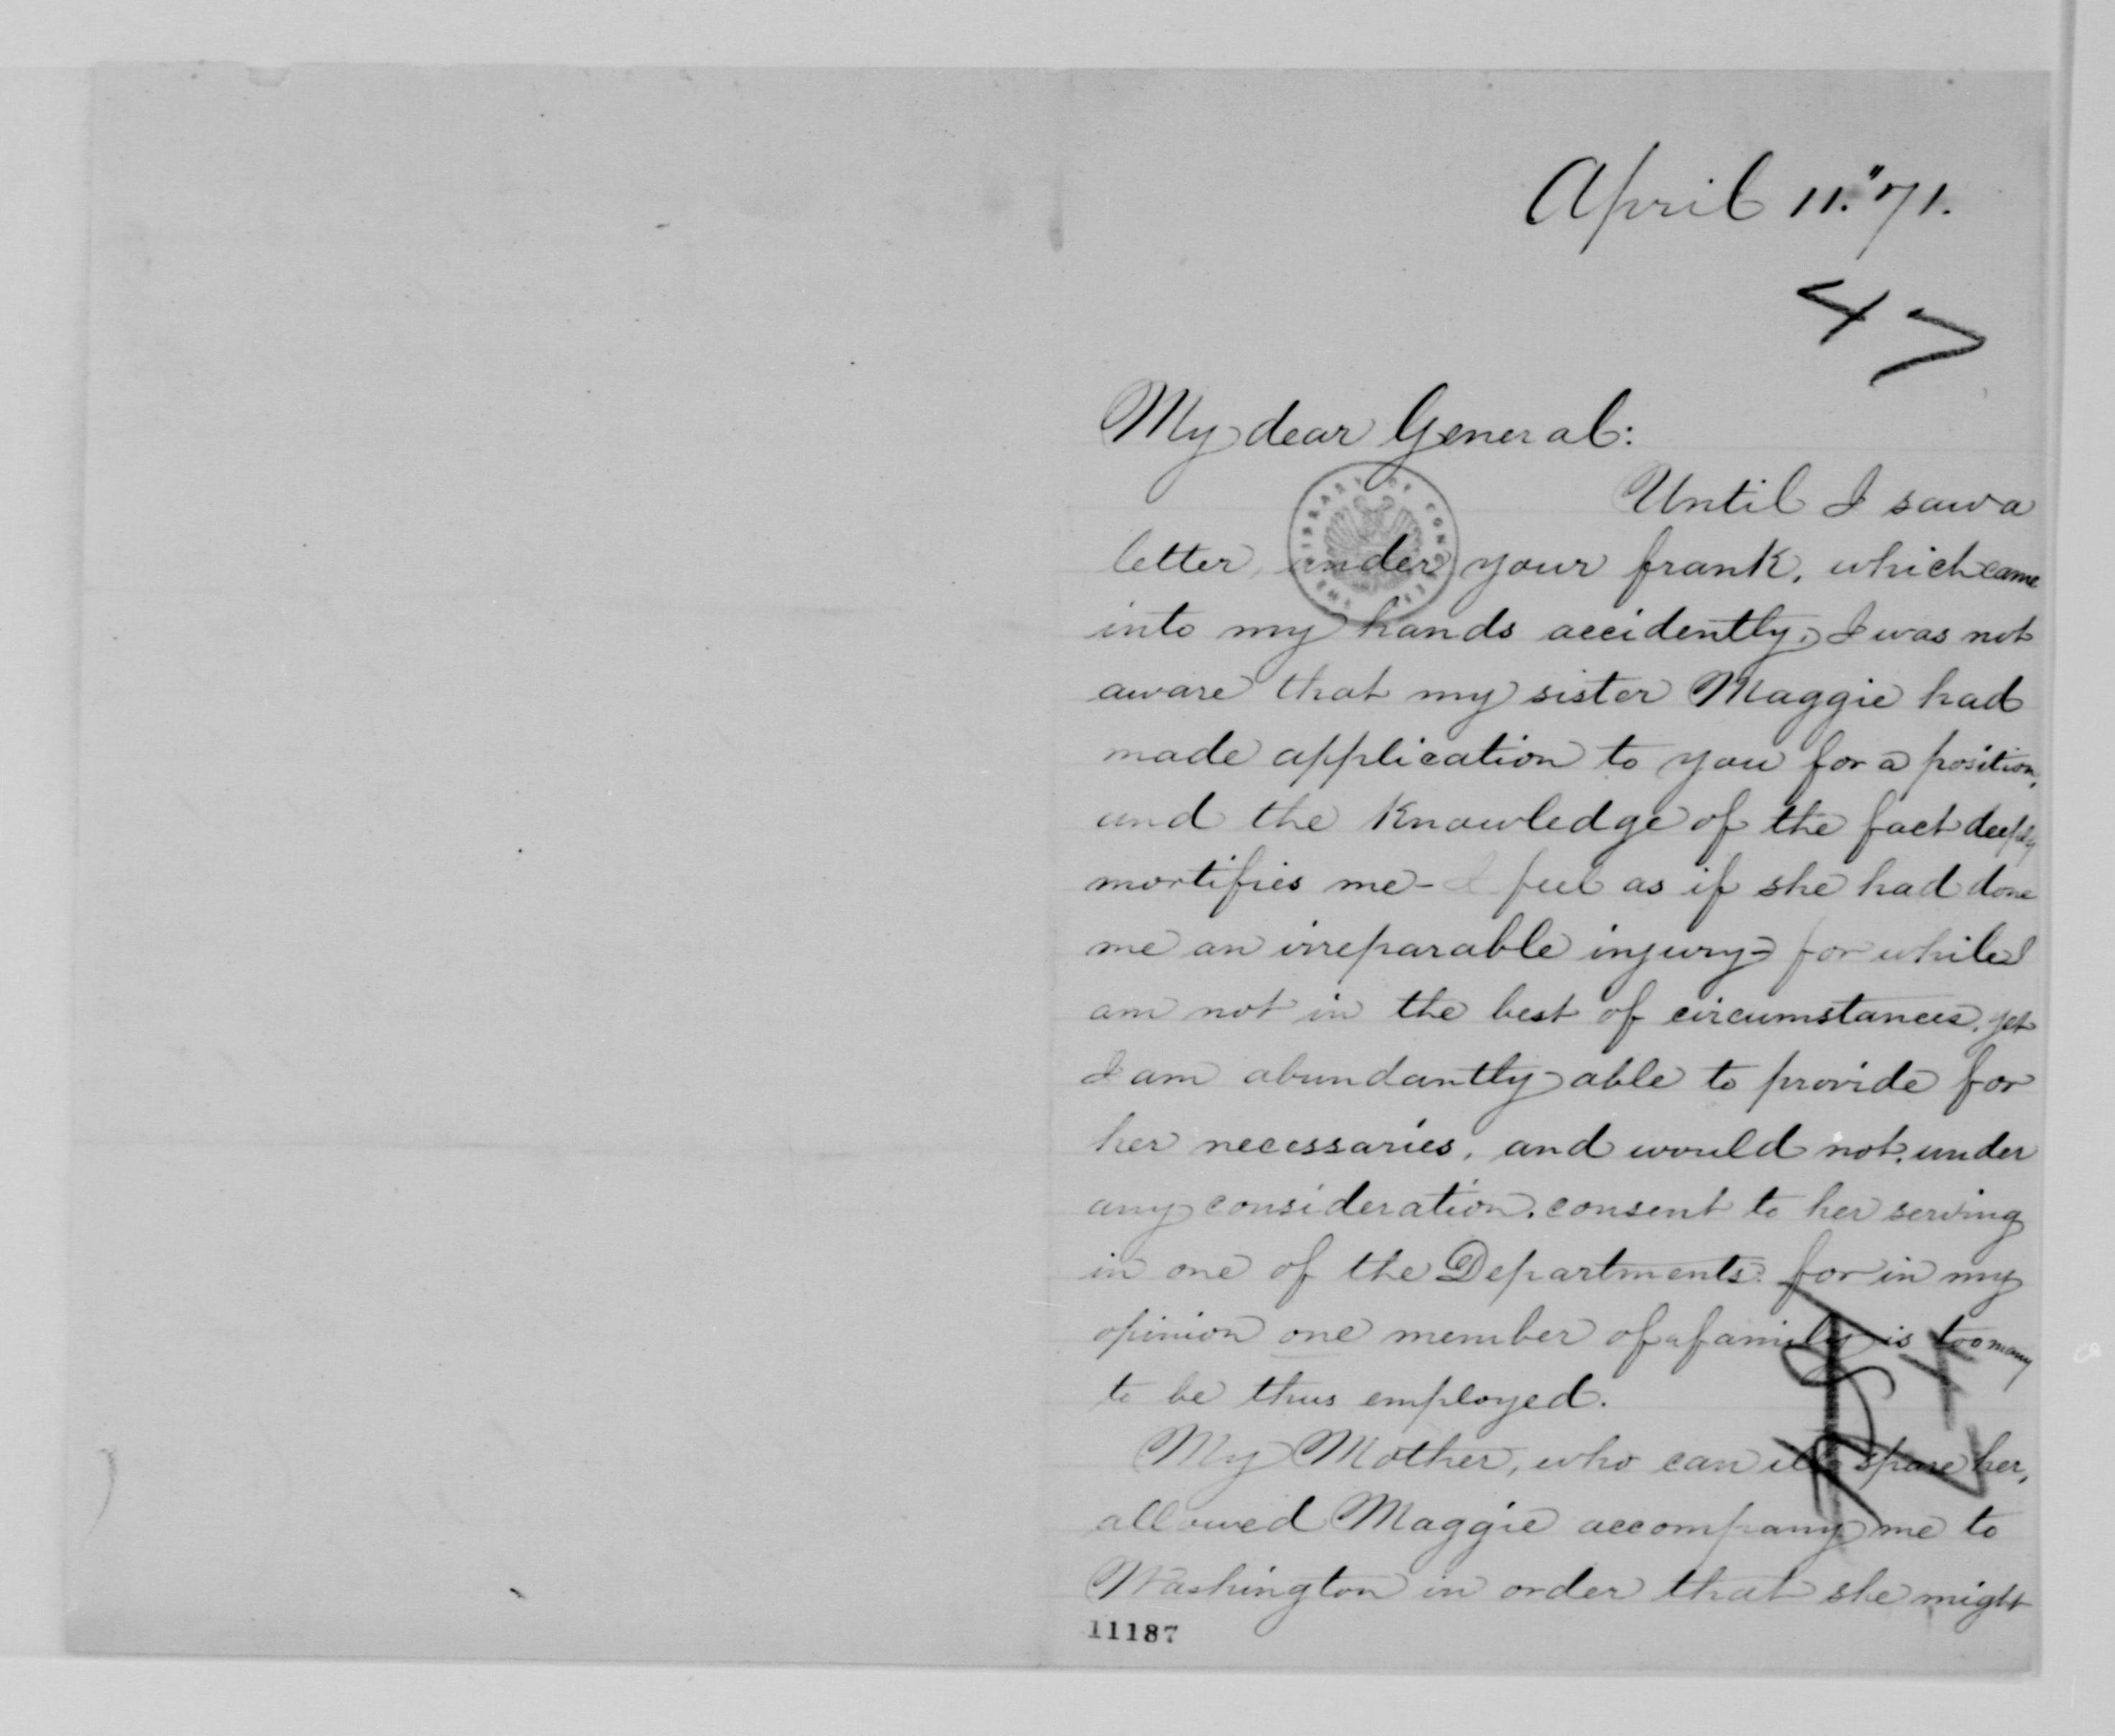 April 11." 71.
47
My dear General:
Until I saw a
letter, under your frank, which came
into my hands accidently, I was not
aware that my sister Maggie had
made application to you for a position,
and the knowledge of the fact deeply
mortifies me - I feel as if she had done
me an irreparable injury - for while I
am not in the best of circumstances, yet
I am abundantly able to provide for
her necessaries, and would not, under
any consideration, consent to her serving
in one of the Departments: for in my
opinion one member of a family is too many
to be thus employed.
My Mother, who can ill spare her,
allowed Maggie accompany me to
Washington in order that she might
11187